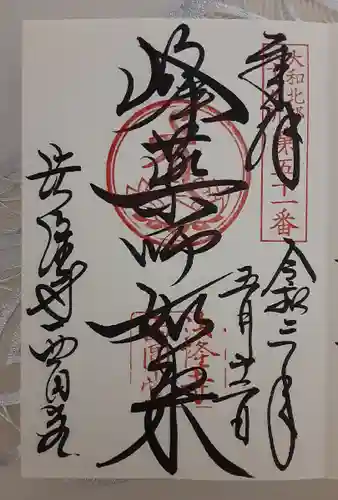 奉拝
大和北部
第五十一番
令和三年
五月十一日
峰薬師如来
法隆寺西円堂